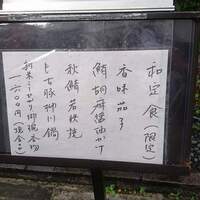 和定食（限定）
香味茄子
鯖胡麻醤油かけ
秋鯖若狭焼
上古豚柳川鍋
新米じゃこ御飯香物
一六〇〇円（税込）